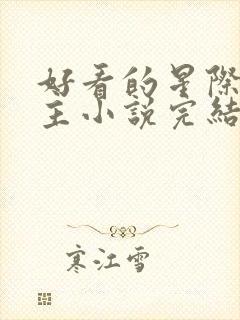 好看的星際
主小說完結
寒江雪